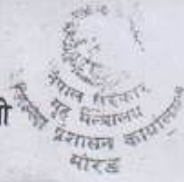 नेपाल सरकार
गृह मन्त्रालय
जिल्ला प्रशासन कार्यालय
मोरङ
ी